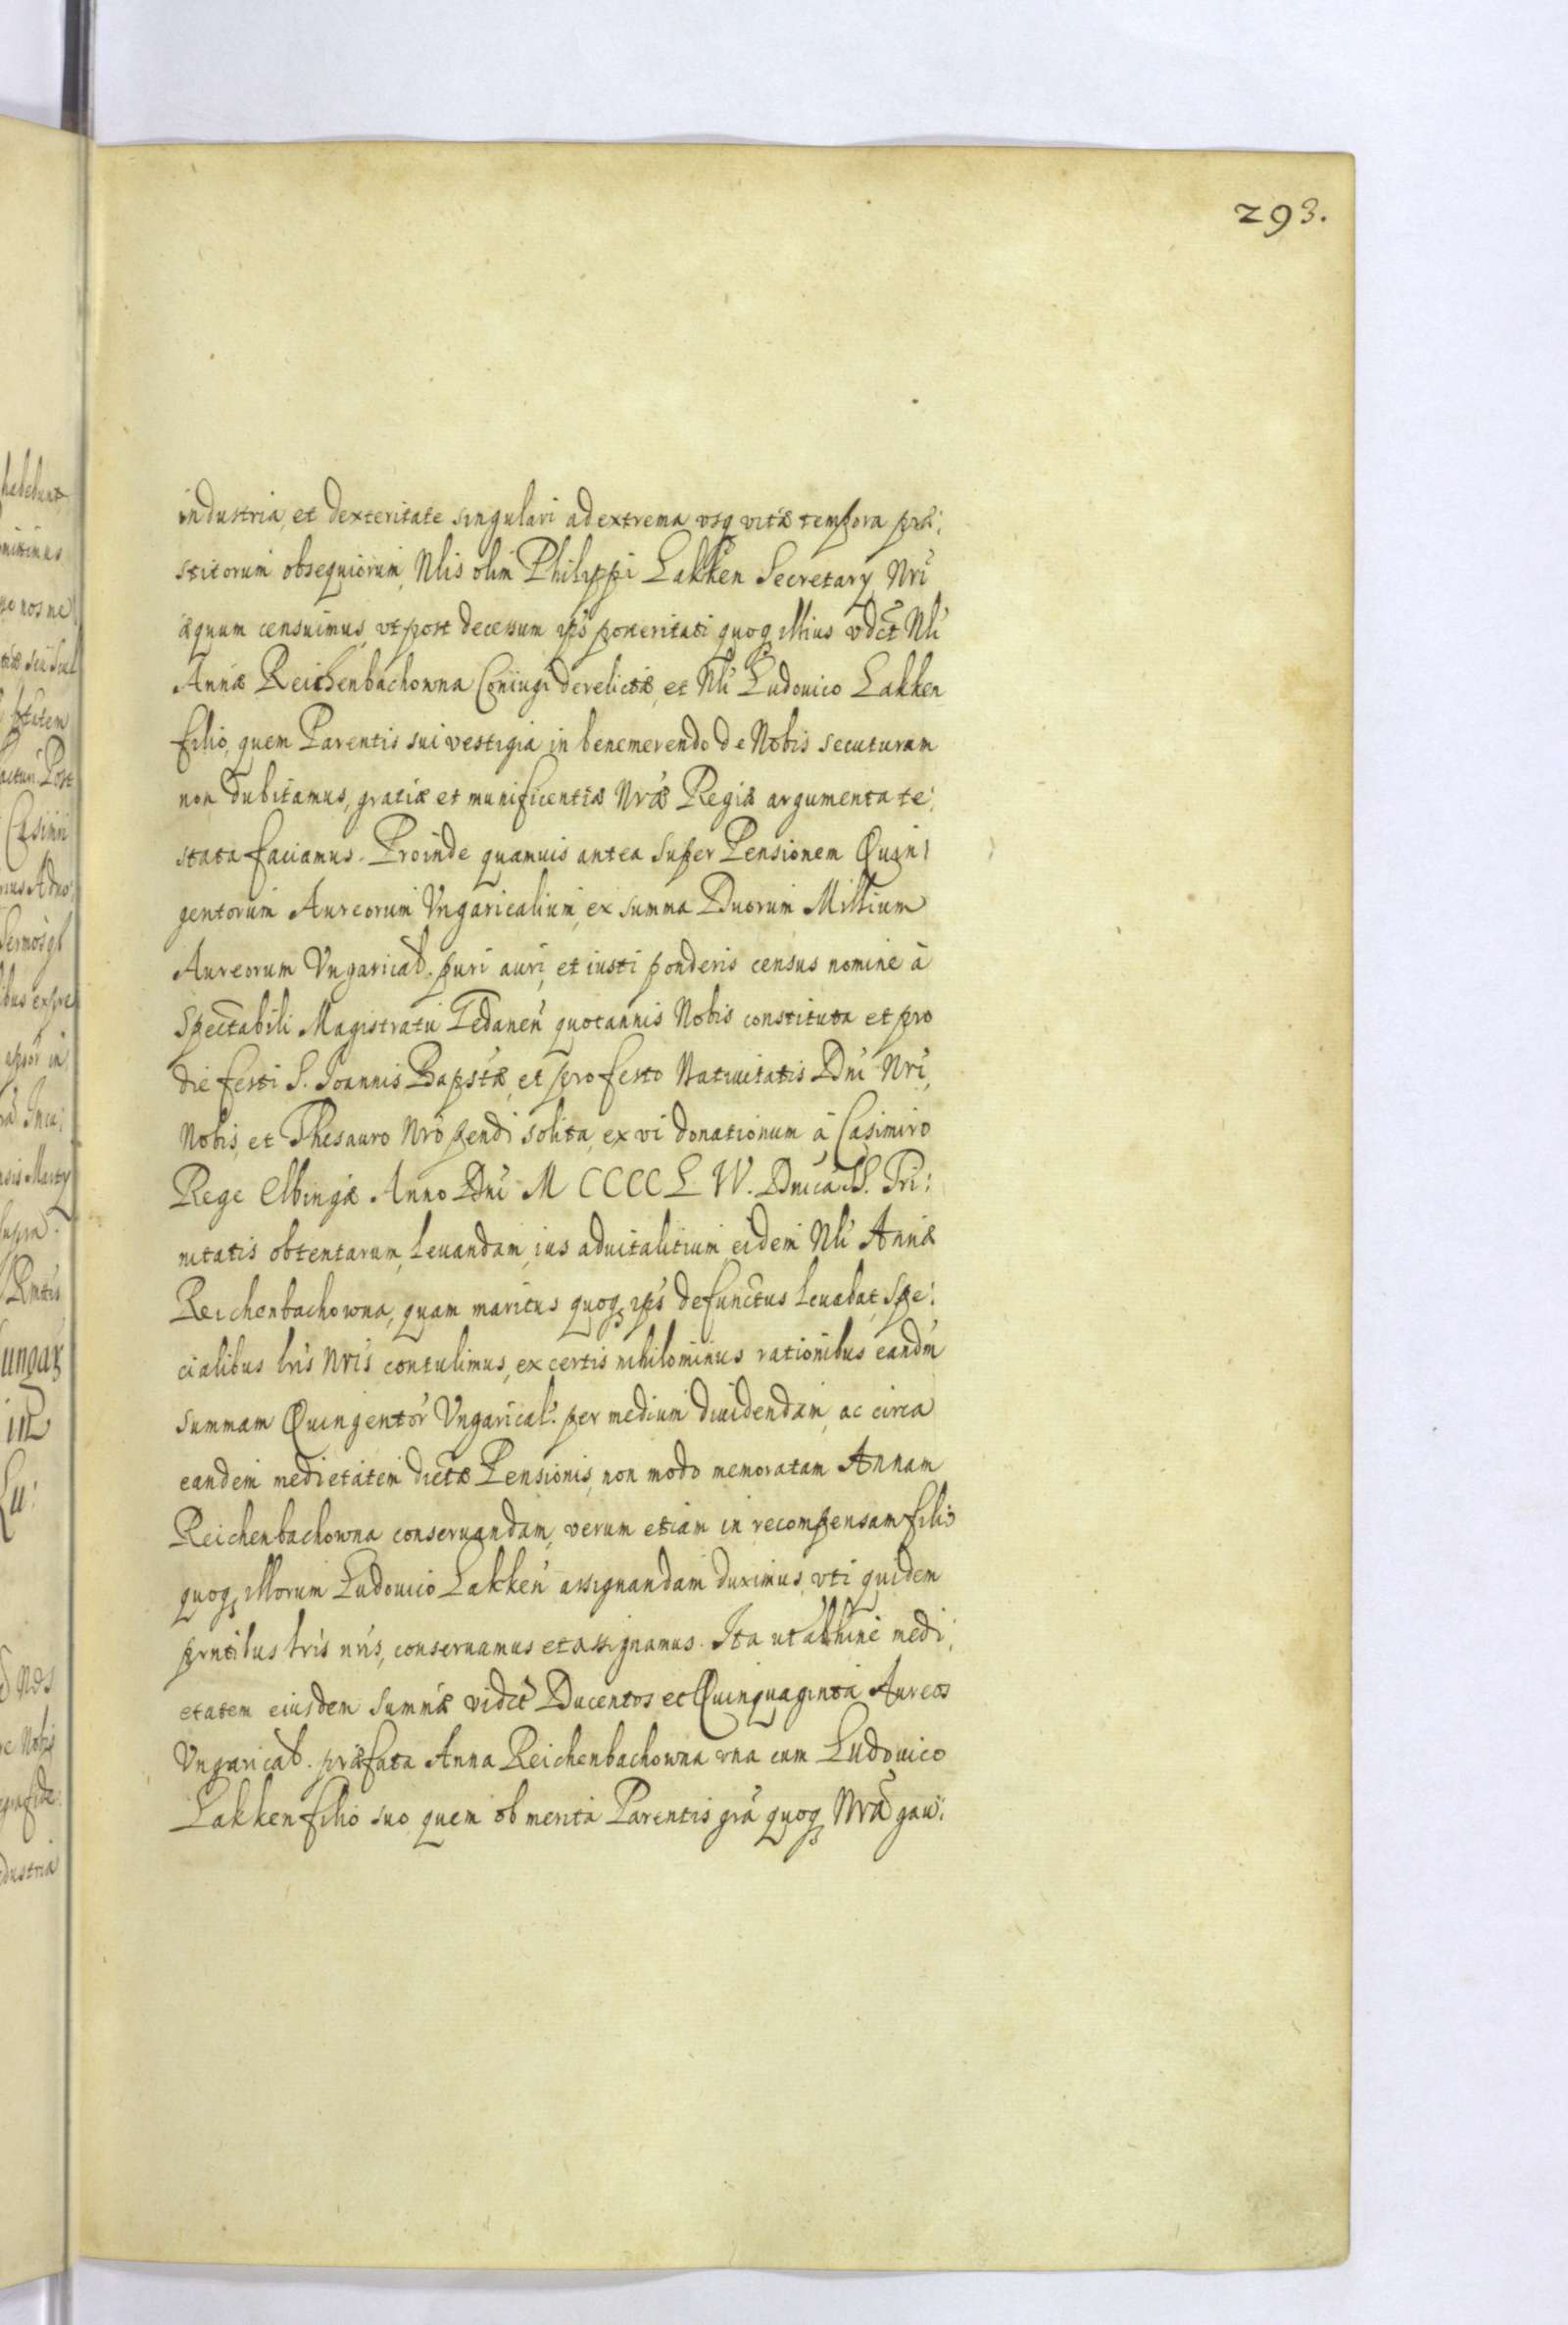 293.
industria, et dexteritate singulari ad extrema vsq vitæ tempora præ:
stitorum obsequiorum, Nlis olim Philippi Lakken Secretary Nri
æquum censuimus, vt post decessum ips posteritati quoq illius vdct Nli
Annæ Reichenbachowna Coniugi derelictæ, et Nli Ludouico Lakken
filio, quem Parentis sui vestigia in benemerendo de Nobis secuturam
non dubitamus, gratiæ et munificentiæ Nræ Regiæ argumenta te:
stata faciamus. Proinde quamuis antea super Pensionem Quin:
gentorum Aureorum Vngaricalium, ex summa Duorum Millium
Aureorum Vngarical. puri auri, et iusti ponderis census nomine à
Spectabili Magistratu Gedanen quotannis Nobis constituta et pro
die festi S. Joannis Bapstæ, et pro festo Natiuitatis Dni Nri,
Nobis, et Thesauro Nro pendi solita, ex vi donationum à Casimiro
Rege Elbingæ Anno Dni M CCCC L VV. Dnica SS. Tri:
nitatis obtentarum, leuandam, ius aduitalitium eidem Nli Annæ
Reichenbachowna, quam maritus quoq ips defunctus leuabat, Spe:
cialibus lris Nris contulimus, ex certis nihilominus rationibus eandm
summam Quingentor Vngarical. per medium diuidendam, ac circa
eandem medietatem dictæ Pensionis, non modo memoratam Annam
Reichenbachowna conseruandam, verum etiam in recompensam filio
quoq illorum Ludouico Lakken assignandam duximus, vti quidem
prntibus lris nris, conseruamus et assignamus. Ita ut abhinc medi:
etatem eiusdem summæ vidct Ducentos et Quinquaginta Aureos
Vngarical. præfata Anna Reichenbachowna vna cum Ludouico
Lakken filio suo quem ob merita Parentis gra quoq Nra gau: